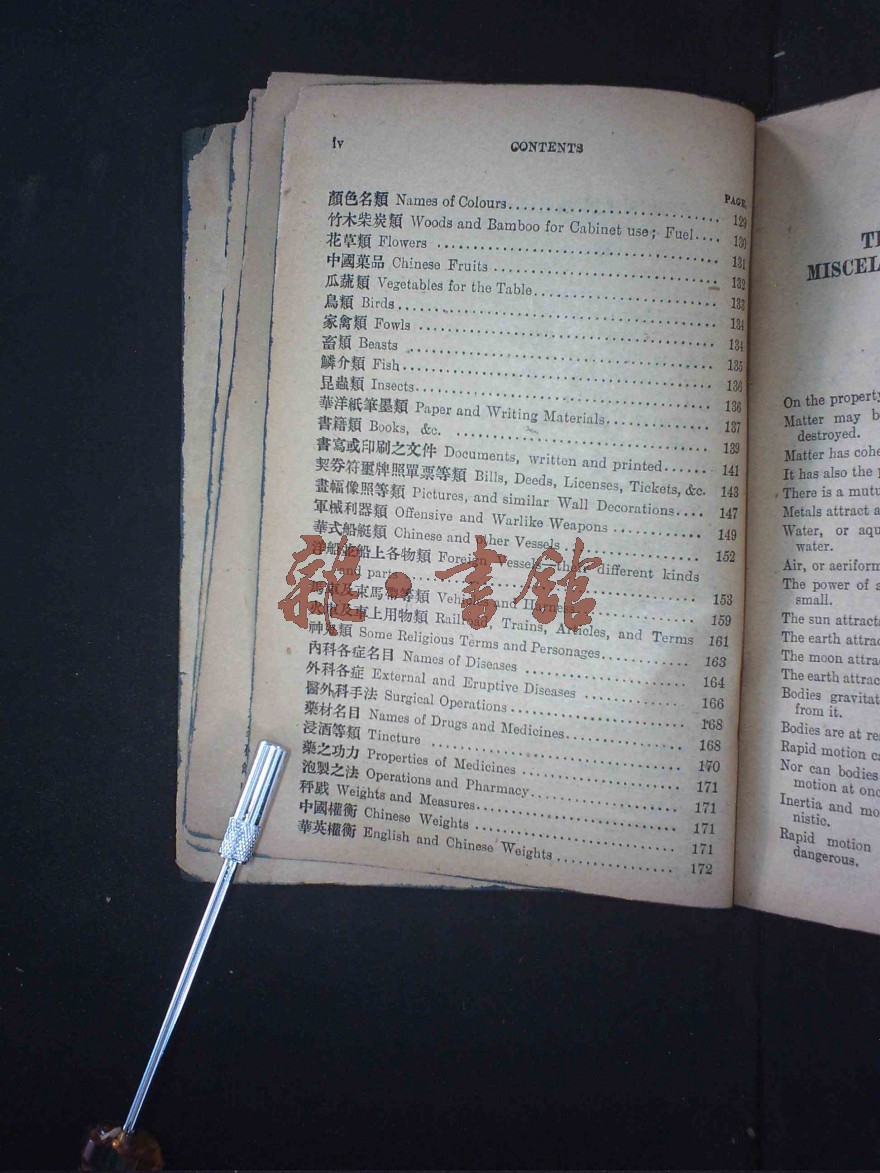 iv CONTENTS
PAGE.
顏色名類 Names of Colours 129
竹木柴炭類 Woods and Bamboo for Cabinet use; Fuel 130
花草類 Flowers 131
中國菓品 Chinese Fruits 132
瓜蔬類 Vegetables for the Table 133
鳥類 Birds 134
家禽類 Fowls 134
畜類 Beasts 135
鱗介類 Fish 136
昆蟲類 Insects 136
華洋紙筆墨類 Paper and Writing Materials 137
書籍類 Books, &c. 139
書寫或印刷之文件 Documents, written and printed 141
契券符璽牌照單票等類 Bills, Deeds, Licenses, Tickets, &c. 143
畫幅像照等類 Pictures, and similar Wall Decorations 147
軍械利器類 Offensive and Warlike Weapons 149
華式船艇類 Chinese and other Vessels 152
洋船並船上各物類 Foreign Vessels—their different kinds
and parts 153
馬車及車馬帶等類 Vehicles and Harness 159
火車及車上用物類 Railroad, Trains, Articles, and Terms 161
神鬼類 Some Religious Terms and Personages 163
內科各症名目 Names of Diseases 164
外科各症 External and Eruptive Diseases 166
醫外科手法 Surgical Operations 168
藥材名目 Names of Drugs and Medicines 168
浸酒等類 Tincture 170
藥之功力 Properties of Medicines 171
泡製之法 Operations and Pharmacy 171
秤戥 Weights and Measures 171
中國權衡 Chinese Weights 171
華英權衡 English and Chinese Weights 172
雜·書館
MISCEL
On the property
Matter may b
destroyed.
Matter has cohe
It has also the p
There is a mutu
Metals attract a
Water, or aqu
water.
Air, or aeriform
The power of a
small.
The sun attracts
The earth attrac
The moon attra
The earth attrac
Bodies gravitat
from it.
Bodies are at res
Rapid motion ca
Nor can bodies
motion at onc
Inertia and mo
nistic.
Rapid motion
dangerous.